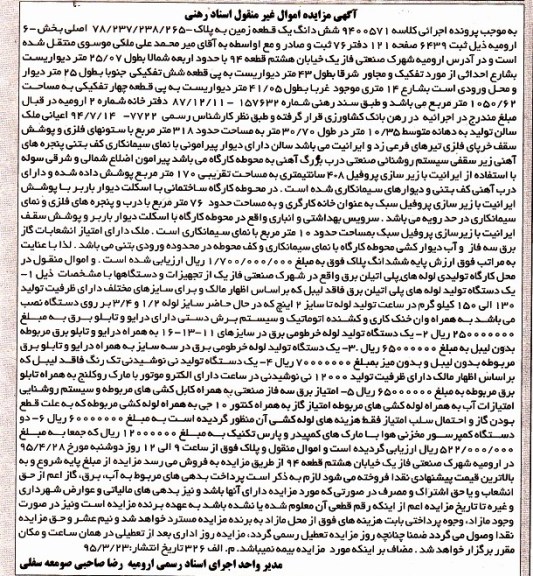 آگهی مزایده اموال غیر منقول اسناد رهنی
به موجب پرونده اجرائی کلاسه ۹۴۰۰۵۷۱ شش دانگ یک قطعه زمین به پلاک ۷۸/۲۳۷/۲۳۸/۲۶۵- اصلی بخش-۶
ارومیه ذیل ثبت ۶۴۳۹ صفحه ۱۲۱ دفتر ۷۶ ثبت و صادر و مع اواسطه به آقای میر محمد علی ملکی موسوی منتقل شده
است و در آدرس ارومیه شهرک صنعتی فاز یک خیابان هشتم قطعه ۹۴ با حدود اربعه شمالا بطول ۲۵/۰۷ متر دیواریست
بشارع احداثی از مورد تفکیک و مجاور شرقا بطول ۴۳ متر دیواریست به پی قطعه شش تفکیکی جنوبا بطول ۲۵ متر دیوار
و محل ورودی است بشارع ۱۴ متری موجود غربا بطول ۴۱/۰۵ متر دیواریست به پی قطعه چهار تفکیکی به مساحت
۱۰۵۰/۶۲ متر مربع می باشد و طبق سند رهنی شماره ۱۵۷۶۳۲ – ۸۷/۱۲/۱۱ دفتر خانه شماره ۲ ارومیه در قبال
مبلغ مندرج در اجرائیه در رهن بانک کشاورزی قرار گرفته و طبق نظر کارشناس رسمی ۷۷۲۲– ۹۴/۷/۱۴ اعیانی ملک
سالن تولید به دهانه متوسط ۱۰/۳۵ متر در طول ۳۰/۷۰ متر به مساحت حدود ۳۱۸ متر مربع با ستونهای فلزی و پوشش
سقف خرپای فلزی تیرهای فرعی زد و ایرانیت می باشد سالن دارای دیوار پیرامونی با نمای سیمانکاری کف بتنی پنجره های
آهنی زیر سقفی سیستم روشنائی صنعتی درب بزرگ آهنی به محوطه کارگاه می باشد پیرامون اضلاع شمالی و شرقی سوله
با استفاده از ایرانیت با زیر سازی پروفیل ۴۰۸ سانتیمتری به مساحت تقریبی ۱۷۰ متر مربع پوشش داده شده و دارای
درب آهنی کف بتنی و دیوارهای سیمانکاری شده است . در محوطه کارگاه ساختمانی با اسکلت دیوار باربر با پوشش
ایرانیت با زیر سازی پروفیل سبک به عنوان خانه کارگری و به مساحت حدود ۷۶ متر مربع با درب و پنجره های فلزی و نمای
سیمانکاری در حد رویه می باشد . سرویس بهداشتی و انباری واقع در محوطه کارگاه با اسکلت دیوار باربر و پوشش سقف
ایرانیت با زیرسازی پروفیل سبک بمساحت حدود ۱۰ متر مربع با نمای سیمانکاری است . ملک دارای امتیاز انشعابات گاز
برق سه فاز و آب دیوار کشی محوطه کارگاه با نمای سیمانکاری و کف محوطه در محدوده ورودی بتنی می باشد . لذا با عنایت
به مراتب فوق ارزش پایه ششدانگ پلاک فوق به مبلغ ۱/۷۰۰/۰۰۰/۰۰۰ ریال ارزیابی شده است . و اموال منقول در
محل کارگاه تولیدی لوله های پلی اتیلن برق واقع در شهرک صنعتی فاز یک از تجهیزات و دستگاهها با مشخصات ذیل ۱-
یک دستگاه تولید لوله های پلی اتیلن برق فاقد لیبل که بر اساس اظهار مالک و برای سایزهای مختلف دارای ظرفیت تولید
۱۳۰ الی ۱۵۰ کیلو گرم در ساعت تولید لوله تا سایز ۲ اینچ که در حال حاضر سایز لوله ۱/۲ و ۳/۴ بر روی دستگاه نصب
می باشد به همراه وان خنک کاری و کشنده اتوماتیک و سیستم برش دستی دارای درایو و تابلو برق به مبلغ
۲۵۰۰۰۰۰۰۰ ریال ۲- یک دستگاه تولید لوله خرطومی برق در سایزهای ۱۱-۱۳-۱۶ به همراه درایو و تابلو برق مربوطه
بدون لیبل به مبلغ ۶۵۰۰۰۰۰۰ ریال .۳- یک دستگاه تولید لوله خرطومی برق در سه سایز به همراه درایو و تابلو برق
مربوطه بدون لیبل و بدون میز بمبلغ ۷۰۰۰۰۰۰۰ ریال ۴- یک دستگاه تولید نی نوشیدنی تک رنگ فاقد لیبل که
بر اساس اظهار مالک دارای ظرفیت تولید ۱۲۰۰۰ نی نوشیدنی در ساعت دارای الکترو موتور با مارک روکلنج به همراه تابلو
برق مربوطه به مبلغ ۶۵۰۰۰۰۰۰ ریال ۵- امتیاز برق سه فاز صنعتی به همراه کابل کشی های مربوطه و سیستم روشنایی
امتیازات آب به همراه لوله کشی های مربوطه امتیاز گاز به همراه کنتور ۱۰ جی به همراه لوله کشی مربوطه که به علت قطع
بودن گاز و احتمال سلب امتیاز فقط هزینه های لوله کشی آن منظور گردیده است به مبلغ ۶۰۰۰۰۰۰۰ ریال ۶- دو
دستگاه کمپرسور مخزنی هوا با مارک های کمپیدر و پارس تکنیک به مبلغ ۱۲۰۰۰۰۰۰ ریال که جمعا به مبلغ
۵۲۲/۰۰۰/۰۰۰ ریال ارزیابی گردیده است و اموال منقول و پلاک فوق از ساعت ۹ الی ۱۲ روز دوشنبه مورخ ۹۵/۴/۲۸
در ارومیه شهرک صنعتی فاز یک خیابان هشتم قطعه ۹۴ از طریق مزایده به فروش می رسد مزایده از مبلغ پایه شروع و به
بالاترین قیمت پیشنهادی نقدا فروخته می شود لازم به ذکر است پرداخت بدهی های مربوط به آب، برق، گاز اعم از حق
انشعاب و یا حق اشتراک و مصرف در صورتی که مورد مزایده دارای آنها باشد و نیز بدهی های مالیاتی و عوارض شهرداری
و غیره تا تاریخ مزایده اعم از اینکه رقم قطعی آن معلوم شده یا نشده باشد به عهده برنده مزایده است ونیز در صورت
وجود مازاد، وجوه پرداختی بابت هزینه های فوق از محل مازاد به برنده مزایده مسترد خواهد شد و نیم عشر و حق مزایده
نقدا وصول می گردد ضمنا چنانچه روز مزایده تعطیل رسمی گردد، مزایده روز اداری بعد از تعطیلی در همان ساعت و مکان
مقرر برگزار خواهد شد . مضاف بر اینکه مورد مزایده بیمه نمیباشد. م. الف ۳۲۶ تاریخ انتشار:۹۵/۳/۲۳
مدیر واحد اجرای اسناد رسمی ارومیه رضا صاحبی صومعه سفلی